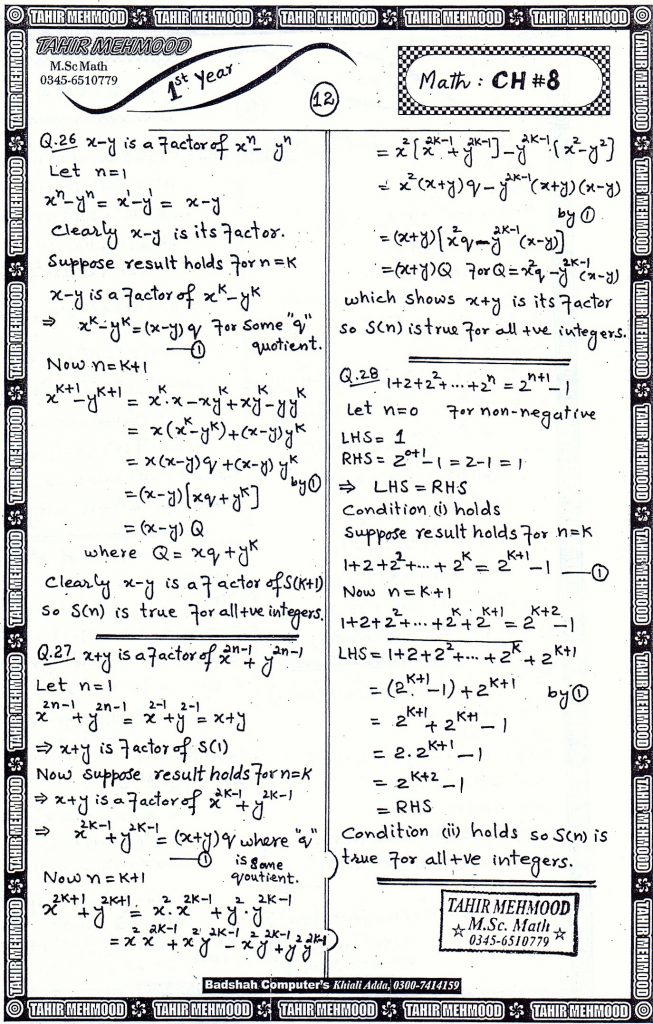 TAHIR MEHMOOD TAHIR MEHMOOD TAHIR MEHMOOD TAHIR MEHMOOD TAHIR MEHMOOD
TAHIR MEHMOOD
M.Sc Math
0345-6510779
1st Year
12
Math : CH #8
Q.26 x-y is a Factor of xⁿ - yⁿ
Let n=1
xⁿ-yⁿ = x¹-y¹ = x-y
Clearly x-y is its Factor.
Suppose result holds For n=K
x-y is a Factor of x^K - y^K
⇒ x^K - y^K = (x-y) q For some "q"
① quotient.
Now n=K+1
x^{K+1} - y^{K+1} = x^K.x - xy^K + xy^K - yy^K
= x(x^K - y^K) + (x-y) y^K
= x(x-y)q + (x-y) y^K
by ①
= (x-y) [xq + y^K]
= (x-y) Q
where Q = xq + y^K
Clearly x-y is a Factor of S(K+1)
so S(n) is true For all +ve integers.
Q.27 x+y is a Factor of x^{2n-1} + y^{2n-1}
Let n=1
x^{2n-1} + y^{2n-1} = x^{2-1} + y^{2-1} = x+y
⇒ x+y is Factor of S(1)
Now suppose result holds For n=K
⇒ x+y is a Factor of x^{2K-1} + y^{2K-1}
⇒ x^{2K-1} + y^{2K-1} = (x+y) q where "q"
① is some
Now n=K+1 qoutient.
x^{2K+1} + y^{2K+1} = x².x^{2K-1} + y².y^{2K-1}
= x²x^{2K-1} + x²y^{2K-1} - x²y^{2K-1} + y²y^{2K-1}
= x²[x^{2K-1} + y^{2K-1}] - y^{2K-1}[x²-y²]
= x²(x+y)q - y^{2K-1}(x+y)(x-y)
by ①
= (x+y)[x²q - y^{2K-1}(x-y)]
= (x+y)Q For Q = x²q - y^{2K-1}(x-y)
which shows x+y is its Factor
so S(n) is true For all +ve integers.
Q.28 1+2+2²+...+2ⁿ = 2^{n+1} - 1
Let n=0 For non-negative
LHS = 1
RHS = 2^{0+1} - 1 = 2-1 = 1
⇒ LHS = RHS
Condition (i) holds
Suppose result holds For n=K
1+2+2²+...+2^K = 2^{K+1} - 1 ①
Now n=K+1
1+2+2²+...+2^K+2^{K+1} = 2^{K+2} - 1
LHS = 1+2+2²+...+2^K + 2^{K+1}
= (2^{K+1} - 1) + 2^{K+1} by ①
= 2^{K+1} + 2^{K+1} - 1
= 2.2^{K+1} - 1
= 2^{K+2} - 1
= RHS
Condition (ii) holds so S(n) is
true For all +ve integers.
TAHIR MEHMOOD
M.Sc. Math
0345-6510779
Badshah Computer's Khiali Adda, 0300-7414159
TAHIR MEHMOOD TAHIR MEHMOOD TAHIR MEHMOOD TAHIR MEHMOOD TAHIR MEHMOOD
TAHIR MEHMOOD TAHIR MEHMOOD TAHIR MEHMOOD TAHIR MEHMOOD TAHIR MEHMOOD TAHIR MEHMOOD TAHIR MEHMOOD TAHIR MEHMOOD
TAHIR MEHMOOD TAHIR MEHMOOD TAHIR MEHMOOD TAHIR MEHMOOD TAHIR MEHMOOD TAHIR MEHMOOD TAHIR MEHMOOD TAHIR MEHMOOD